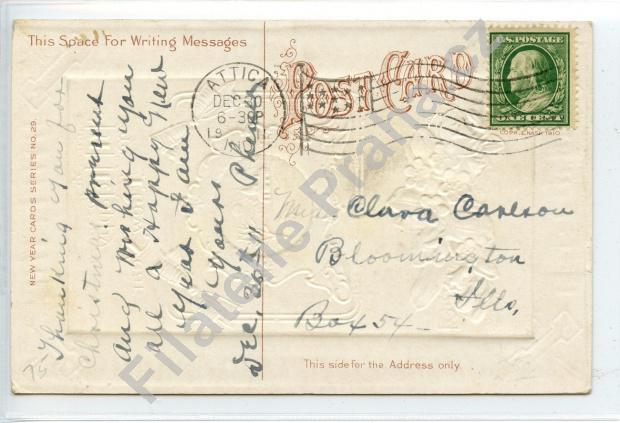 This Space For Writing Messages
POST CARD
NEW YEAR CARDS SERIES NO. 29.
U.S. POSTAGE
ONE CENT
COPR. E. NASH 1910
ATTICA
DEC 26
6-30P
Thanking you for
Christmas present
and wishing you
all a Happy New
Year I am
Yours
Dec, 26 1911
Miss Clara Carlson
Bloomington
Ills,
Box 54-
This side for the Address only.
Filatelie Praha.cz